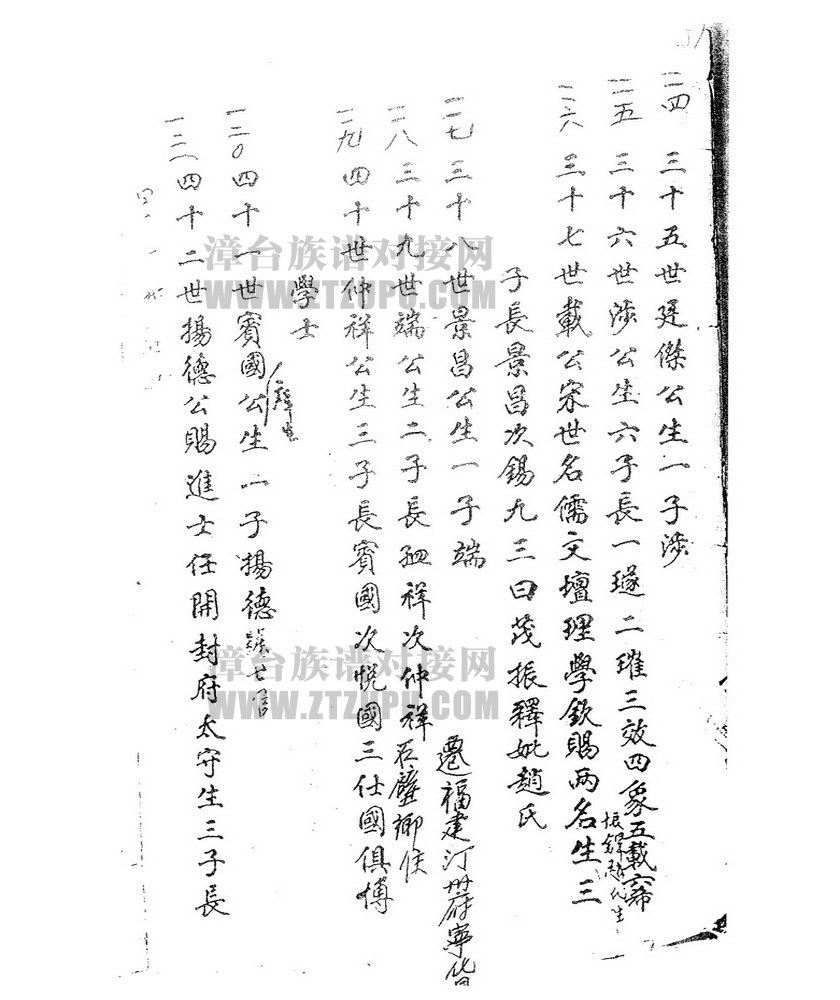 一一四 三十五世廷傑公生一子涉
一一五 三十六世涉公生六子長一璲二璀三效四象五載六
一一六 三十七世載公宋世名儒文壇理學欽賜兩名生三
子長景昌次錫九三曰茂振釋妣趙氏
一一七 三十八世景昌公生一子端
一一八 三十九世端公生二子長 祥次仲祥 遷福建汀州府寧化
石壁鄉住
一一九 四十世仲祥公生三子長賓國次悅國三仕國俱博
學士
一二〇 四十一世賓國公生一子揚德
一二一 四十二世揚德公賜進士任開封府太守生三子長
漳台族谱对接网
WWW.ZTZUPU.COM
漳台族谱对接网
WWW.ZTZUPU.COM